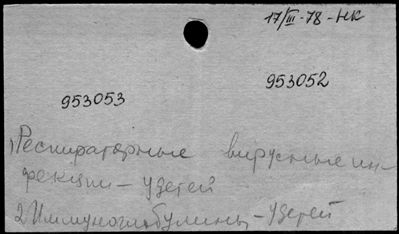 17/III-78-НК
953052
953053
1) Респираторные вирусные ин-
фекции - у детей
2. Иммуноглобулины - у детей